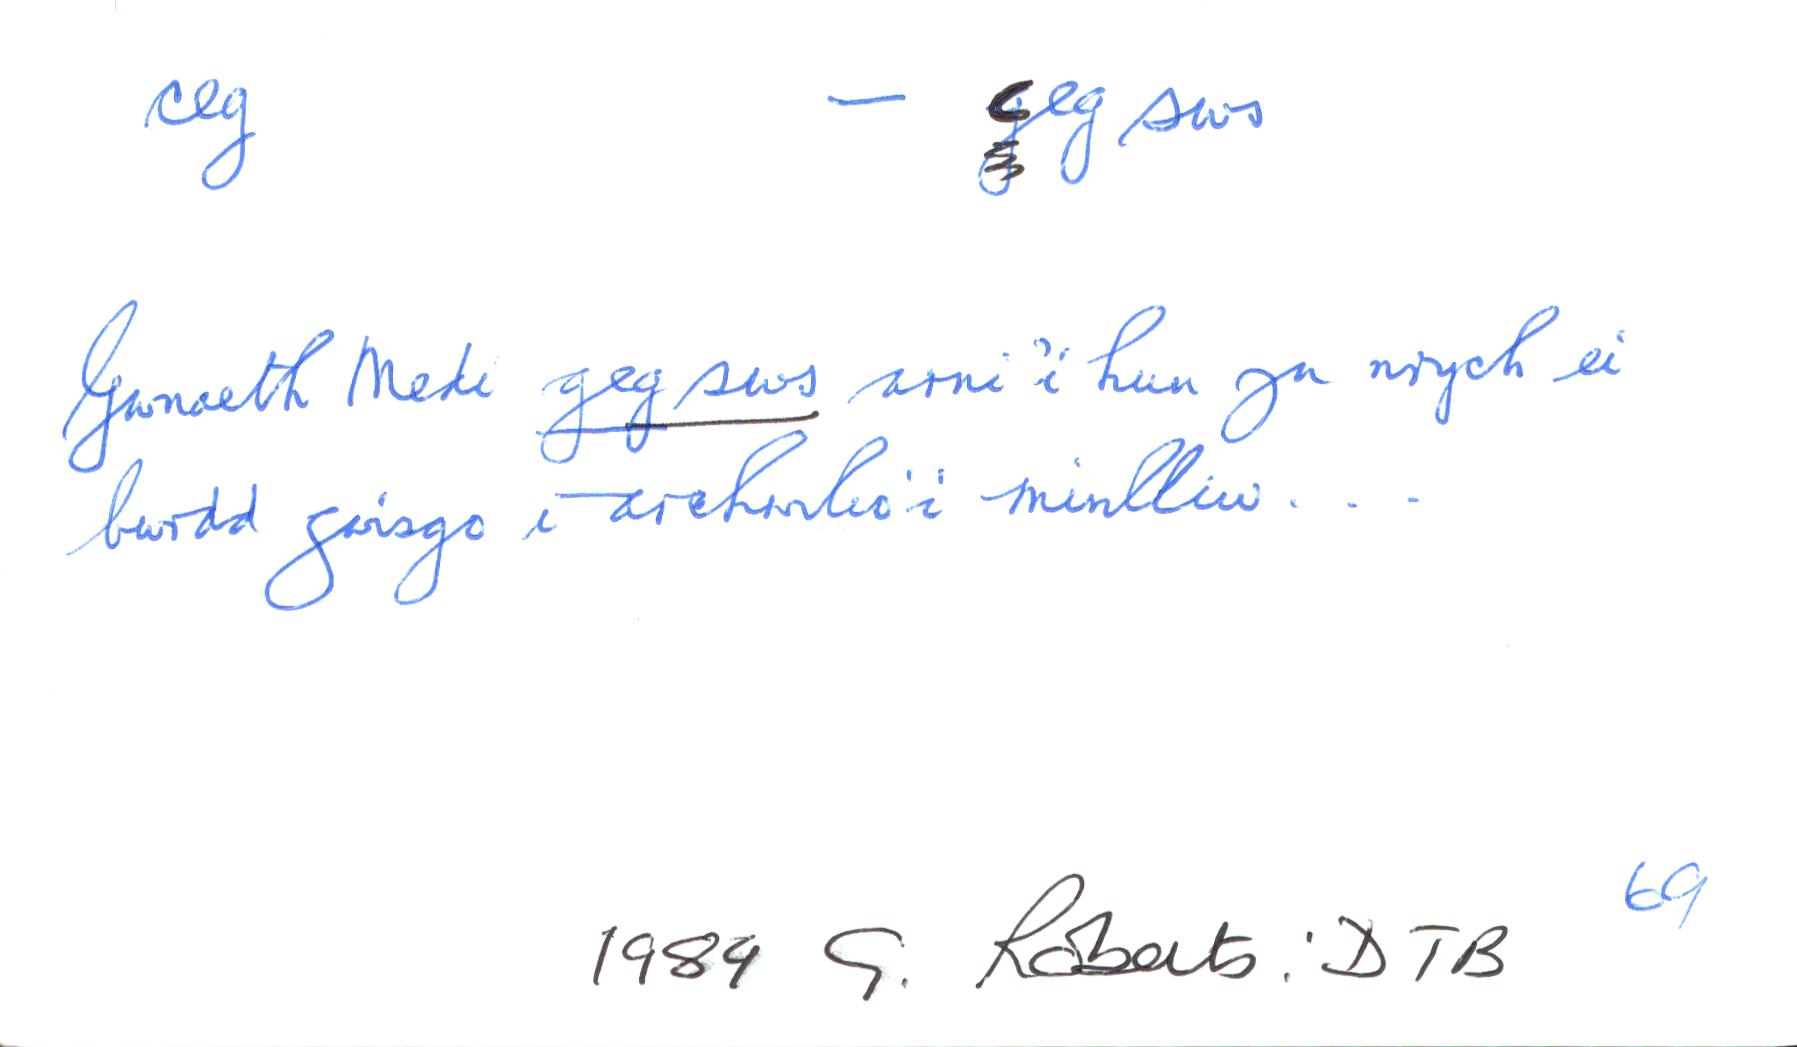 ceg — ceg sws
Gwnaeth Medi geg sws arni'i hun yn nrych ei
bwrdd gwisgo i archwilio'i minlliw . . .
69
1989 G. Roberts: DTB